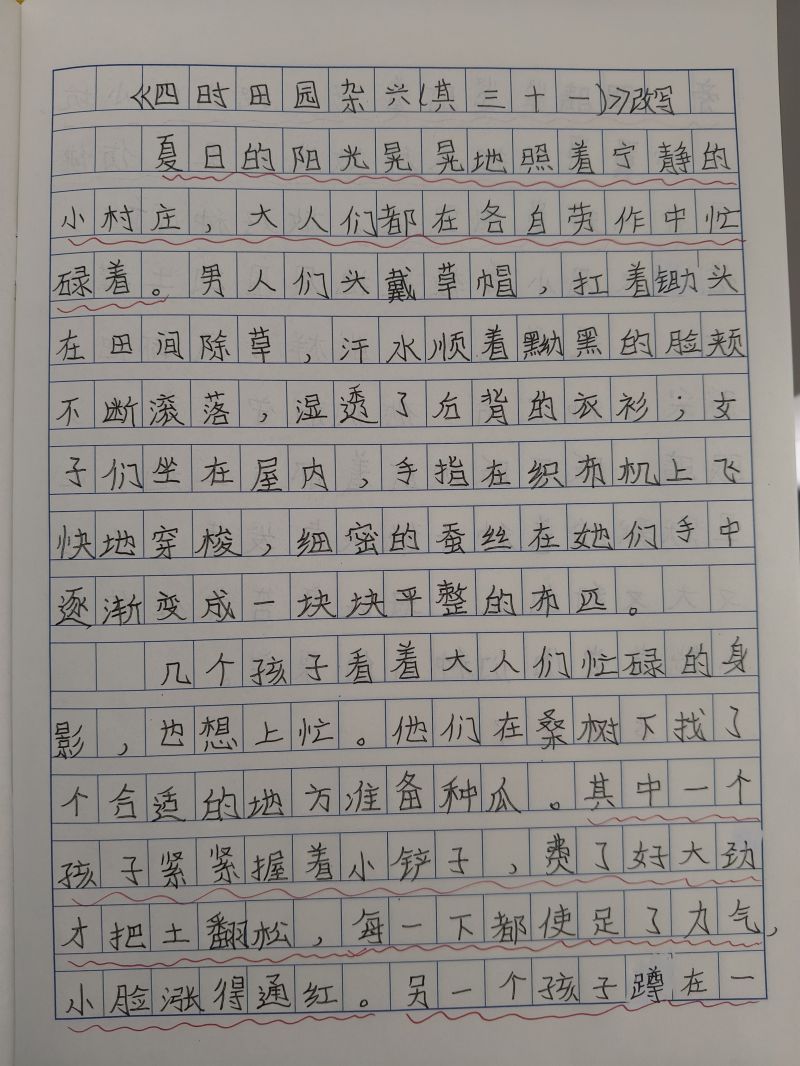 《四时田园杂兴(其三十一)》改写
夏日的阳光晃晃地照着宁静的
小村庄，大人们都在各自劳作中忙
碌着。男人们头戴草帽，扛着锄头
在田间除草，汗水顺着黝黑的脸颊
不断滚落，湿透了后背的衣衫；女
子们坐在屋内，手指在织布机上飞
快地穿梭，细密的蚕丝在她们手中
逐渐变成一块块平整的布匹。
几个孩子看着大人们忙碌的身
影，也想上忙。他们在桑树下找了
个合适的地方准备种瓜。其中一个
孩子紧紧握着小铲子，费了好大劲
才把土翻松，每一下都使足了力气，
小脸涨得通红。另一个孩子蹲在一